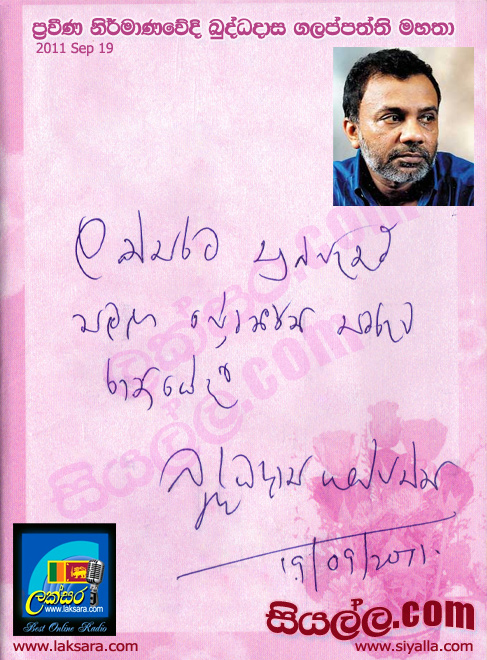 ප්‍රවීණ නිර්මාණවේදී බුද්ධදාස ගලප්පත්ති මහතා
2011 Sep 19
ලක්සරට
සියල්ල.com
රාත්‍රියේදී
බුද්ධදාස ගලප්පත්ති
19/09/2011.
ලක්සර
www.laksara.com
Best Online Radio
සියල්ල.com
www.laksara.com
www.siyalla.com